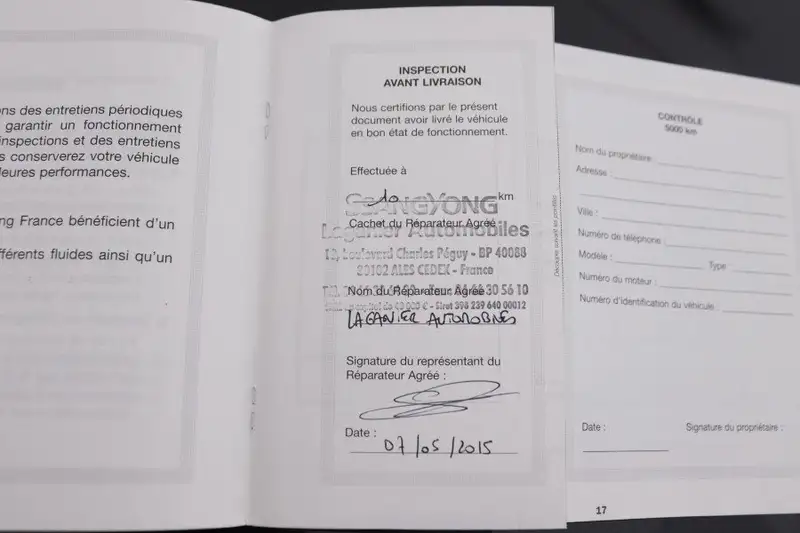 ns des entretiens périodiques
garantir un fonctionnement
inspections et des entretiens
s conserverez votre véhicule
leures performances.
ng France bénéficient d'un
fférents fluides ainsi qu'un
INSPECTION
AVANT LIVRAISON
Nous certifions par le présent
document avoir livré le véhicule
en bon état de fonctionnement.
Effectuée à
10 km
SSANGYONG
Cachet du Réparateur Agréé
Laganier Automobiles
Boulevard Charles Péguy - BP 40088
30102 ALES CEDEX - France
Nom du Réparateur Agréé
30 56 10
Siret 398 239 640 00012
LAGANIER AUTOMOBILES
Signature du représentant du
Réparateur Agréé :
Date :
07/05/2015
Découpe suivant les pointillés
CONTRÔLE
5000 km
Nom du propriétaire
Adresse :
Ville :
Numéro de téléphone
Modèle : Type
Numéro du moteur :
Numéro d'identification du véhicule :
Date : Signature du propriétaire :
17